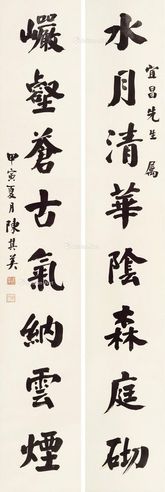 宜昌先生属
水月清華陰森庭砌
巗壑蒼古氣納雲煙
甲寅夏月陳其美